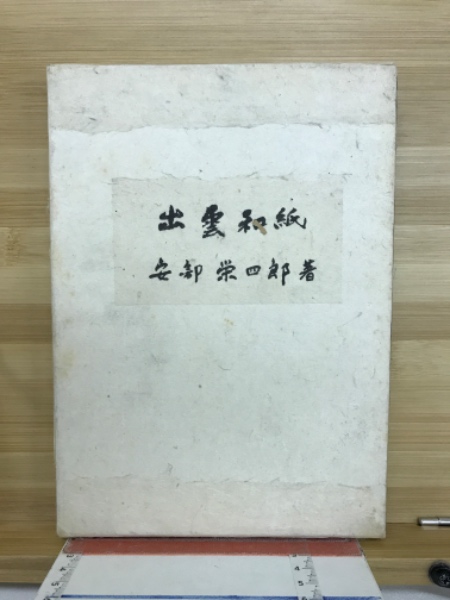 出雲和紙
安部栄四郎著